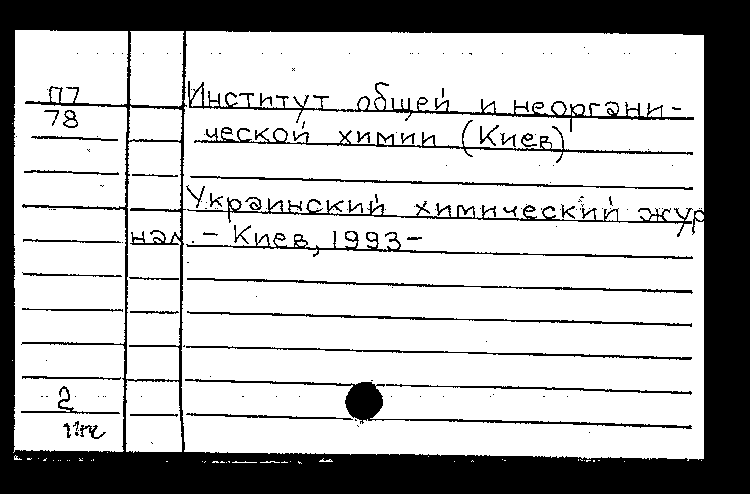 П7
78
Институт общей и неоргани-
ческой химии (Киев)
Украинский химический жур
нал. - Киев, 1993-
2